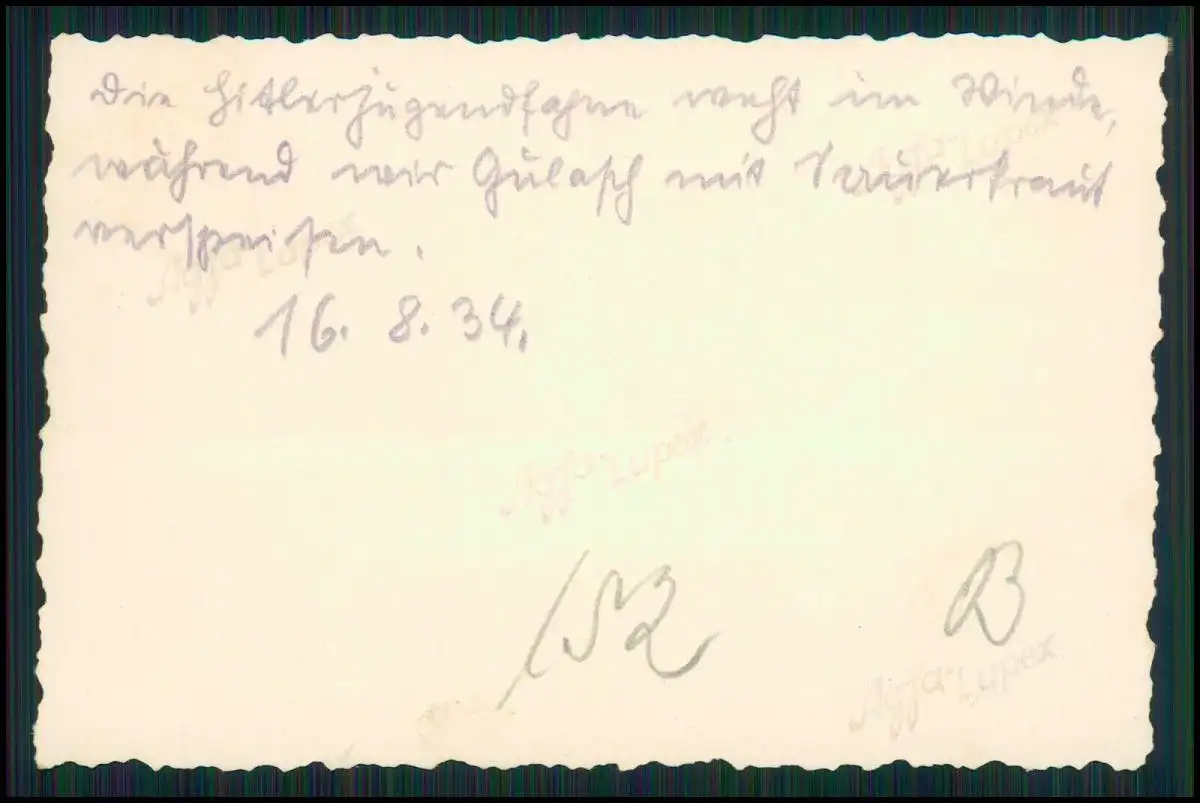 Die Hitlerjugendfahne weht im Winde,
während wir Gulasch mit Sauerkraut
verspeisen.
16. 8. 34.
Agfa-Lupex
Agfa-Lupex
Agfa-Lupex
B
Agfa-Lupex